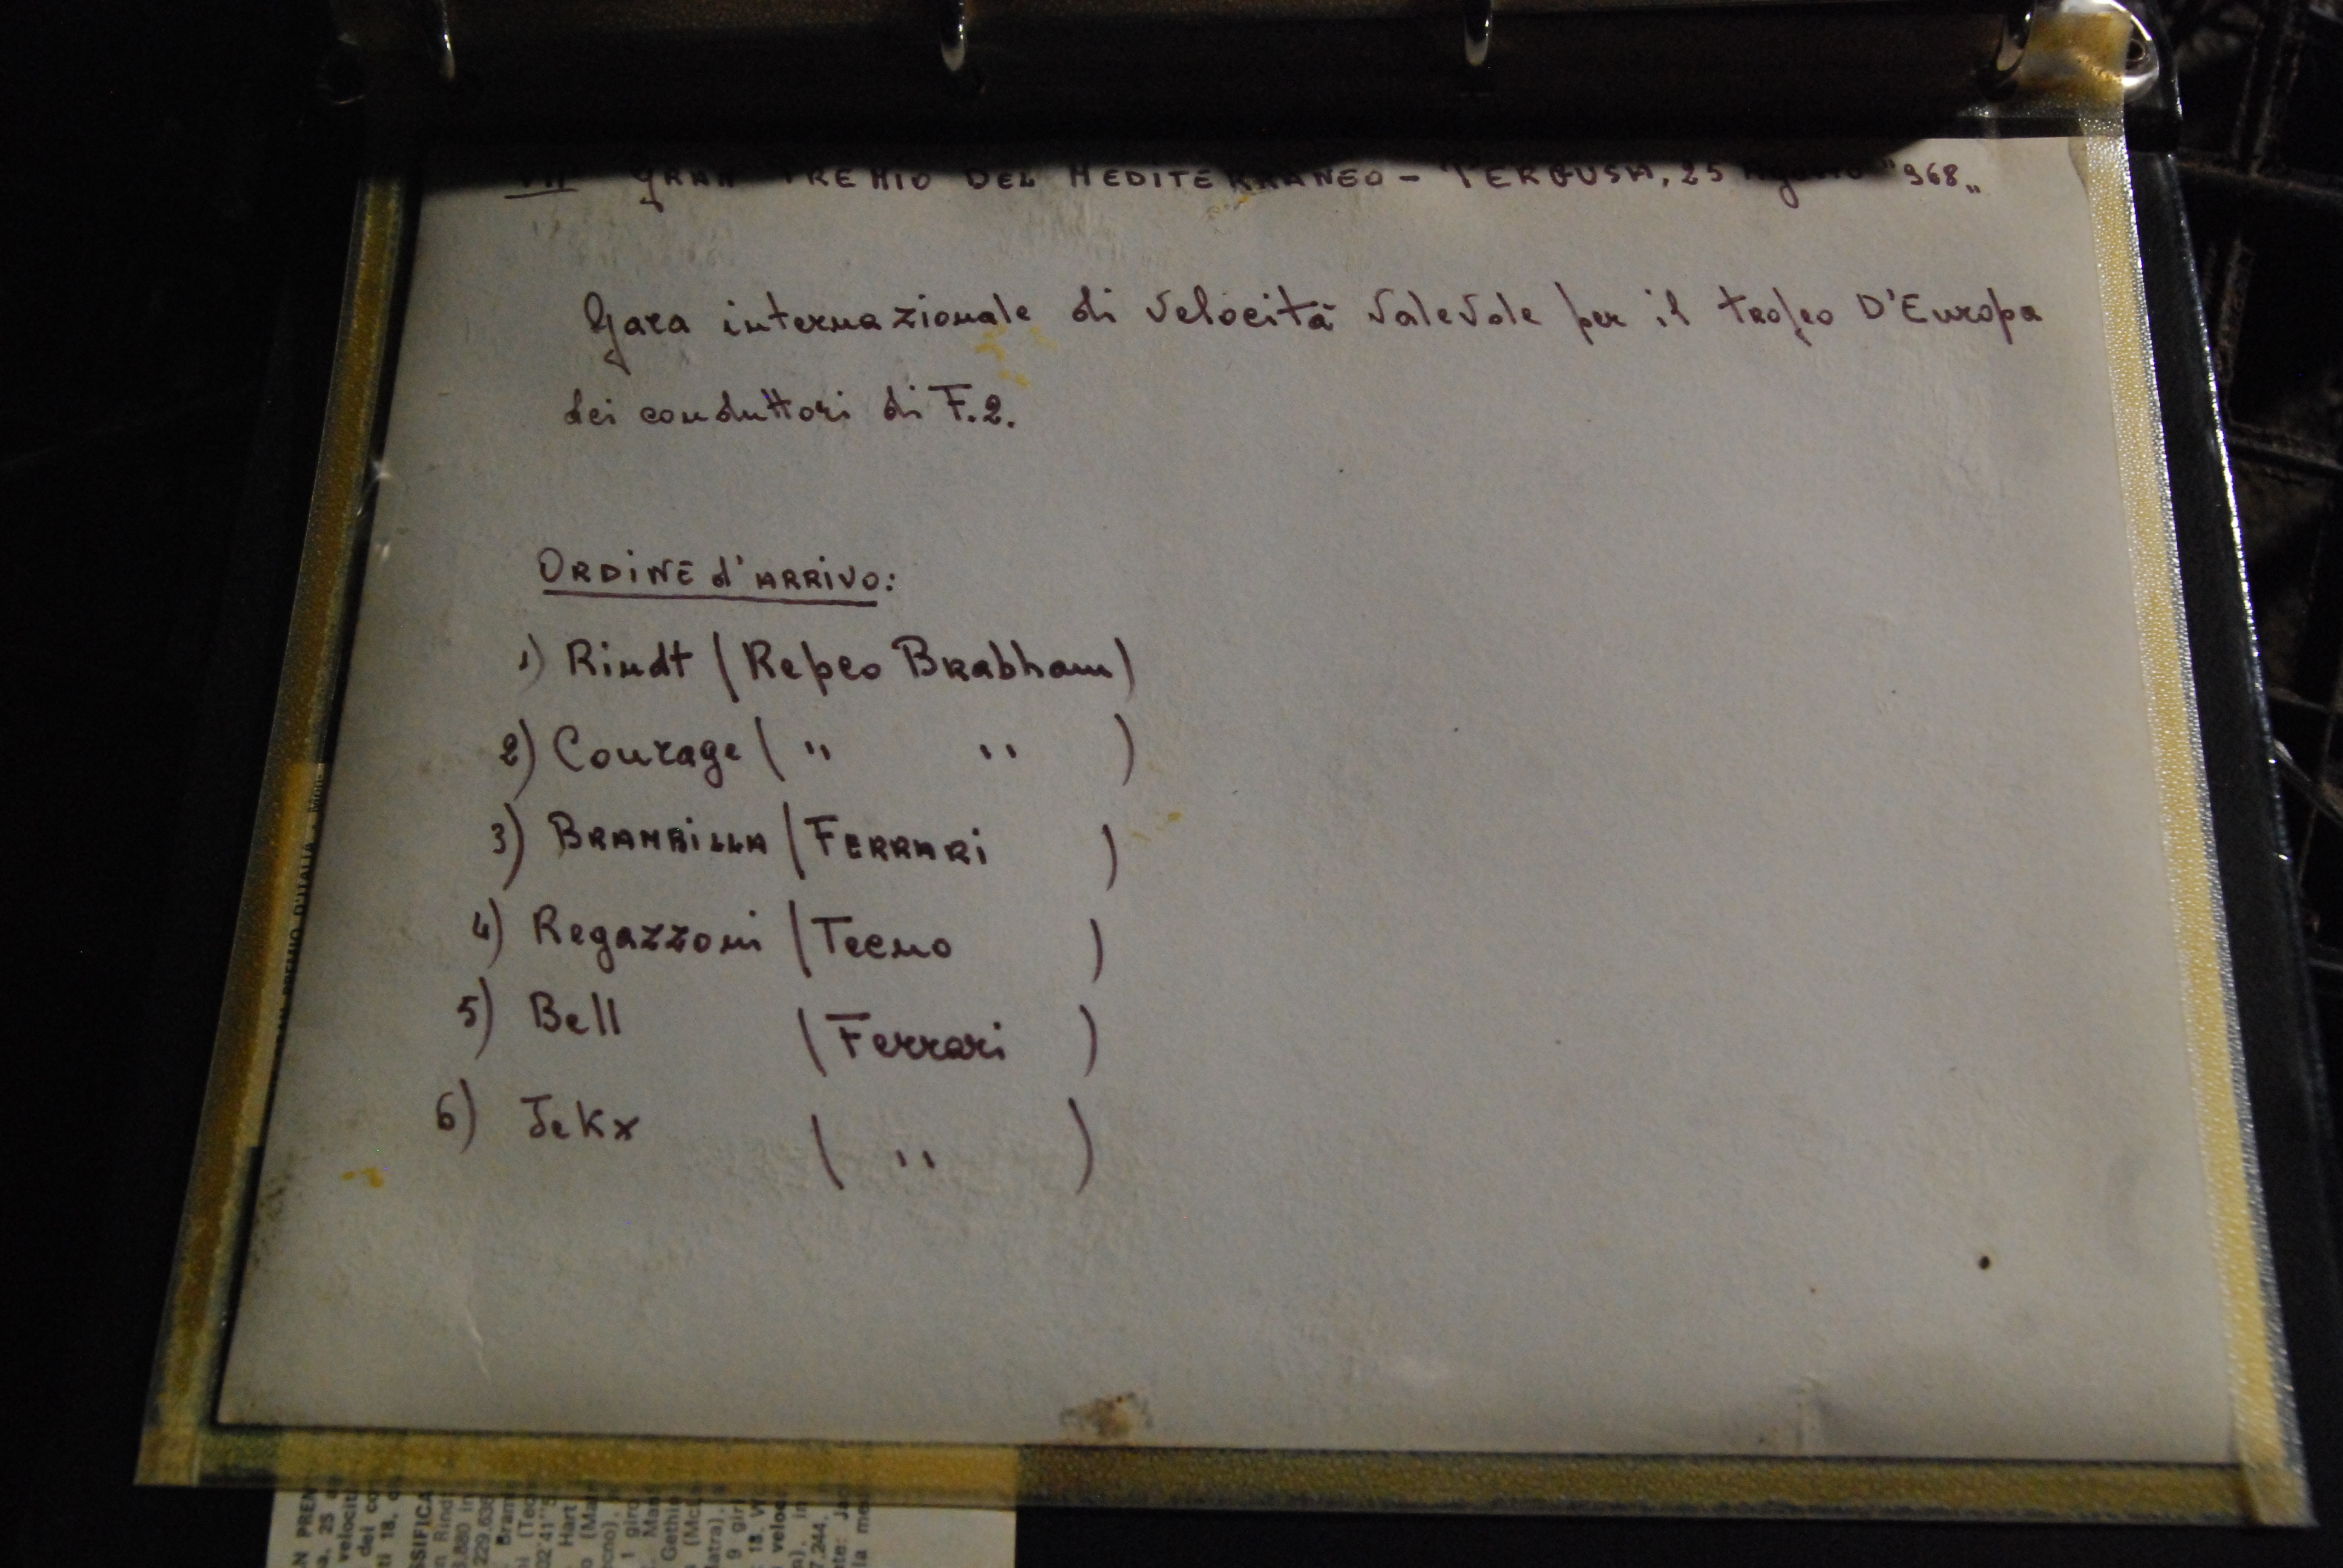 VII GRAN PREMIO DEL MEDITERRANEO - PERGUSA, 25 Agosto "968"
Gara internazionale di velocità valevole per il trofeo D'Europa
dei conduttori di F.2.
ORDINE d'ARRIVO:
1) Rindt (Repco Brabham)
2) Courage ( " " )
3) BRAMBILLA (FERRARI )
4) Regazzoni (Tecno )
5) Bell (Ferrari )
6) JeKx ( " )